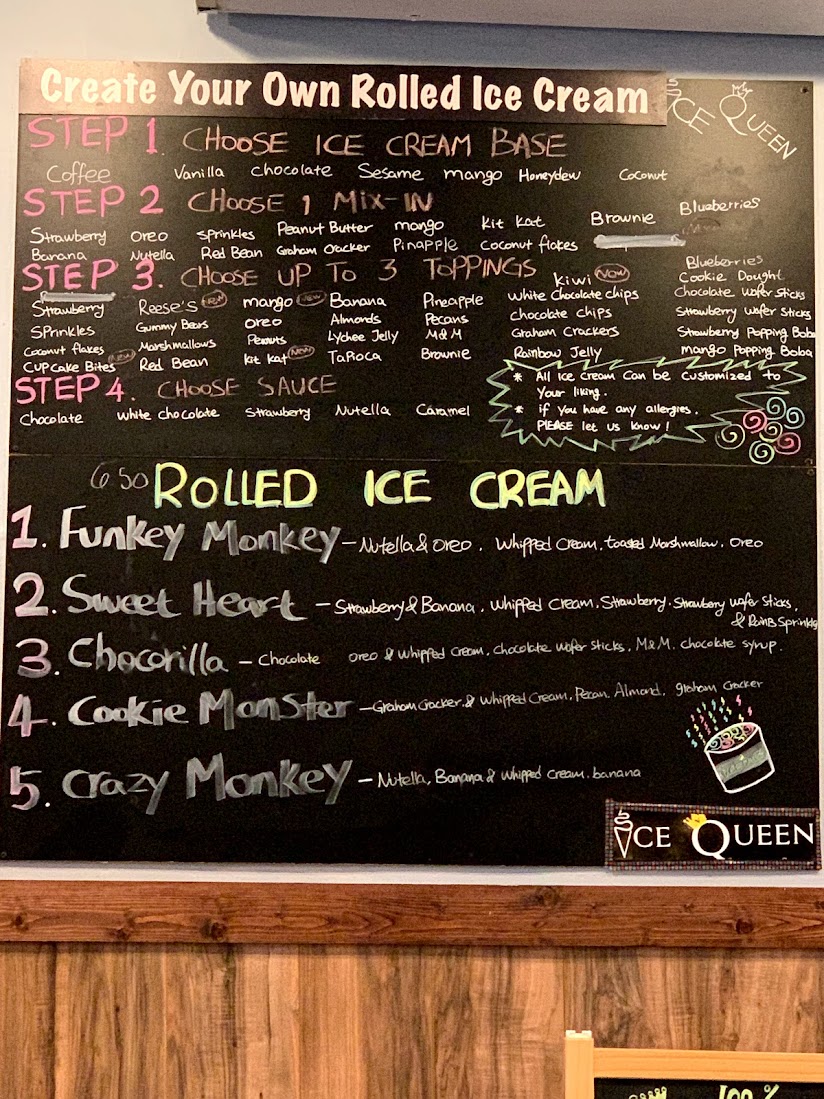 Create Your Own Rolled Ice Cream
ICE QUEEN
STEP 1. CHOOSE ICE CREAM BASE
Coffee Vanilla chocolate Sesame mango Honeydew Coconut
STEP 2 CHOOSE 1 MIX-IN
Strawberry oreo sprinkles Peanut Butter mango Kit Kat Brownie Blueberries
Banana Nutella Red Bean Graham Cracker Pinapple coconut flakes
STEP 3. CHOOSE UP TO 3 TOPPINGS Kiwi New Blueberries
Cookie Dought
Strawberry Reese's New mango New Banana Pineapple white chocolate chips chocolate wafer sticks
SPrinkles Gummy Bears oreo Almonds Pecans chocolate chips Strawberry wafer sticks
Coconut flakes Marshmallows Peanuts Lychee Jelly M&M Graham Crackers Strawberry Popping Boba
CUPCake Bites New Red Bean Kit Kat New TaPioca Brownie Rainbow Jelly mango Popping Boba
STEP 4. CHOOSE SAUCE
Chocolate white chocolate Strawberry Nutella Caramel
* All ice cream can be customized to
Your liking.
* if You have any allergies,
PLEASE let us know!
6 50 ROLLED ICE CREAM
1. Funkey Monkey - Nutella & oreo. Whipped Cream. toasted Marshmallow. oreo
2. Sweet Heart - Strawberry & Banana. whipped cream. Strawberry. Strawberry wafer sticks,
& RainB Sprinkls
3. Chocorilla - Chocolate oreo & whipped cream. chocolate wafer sticks. M&M. chocolate syrup.
4. Cookie Monster - Graham Cracker & whipped Cream. Pecan. Almond. graham cracker
5. Crazy Monkey - Nutella, Banana & whipped cream. banana
ICE QUEEN
100%